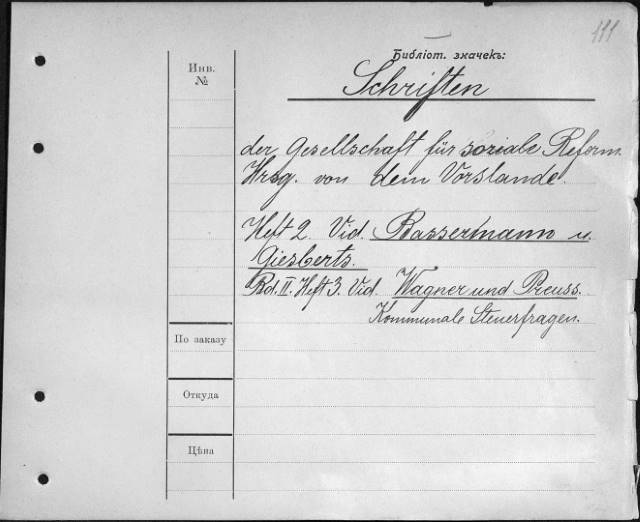 111
Библіот. значекъ:
Инв.
№
Schriften
der Gesellschaft für soziale Reform.
Hrsg. von dem Vorstande.
Heft 2. Vid. Bassermann u.
Giesberts.
Bd. II. Heft 3. Vid. Wagner und Preuss.
Kommunale Steuerfragen.
По заказу
Откуда
Цѣна